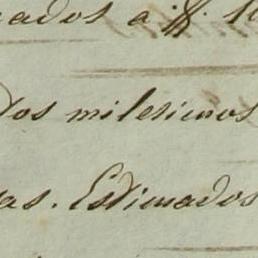 cados a $. 10
dos milesimos
as. Estimados